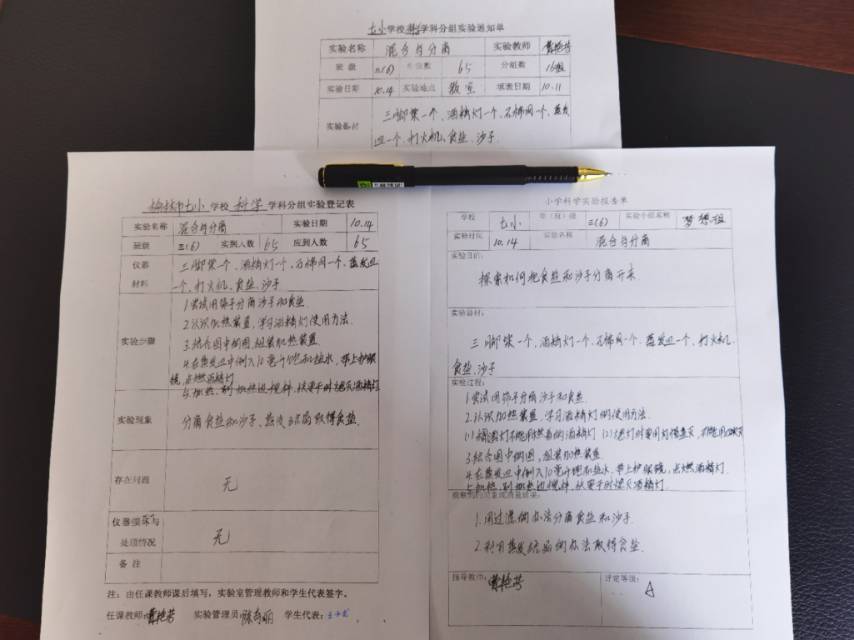 土小学校科学学科分组实验通知单
实验名称 混合与分离 实验教师
班级 三(6) 65 分组数 16组
实验日期 10.14 实验地点 教室 填表日期 10.11
实验器材 三脚架一个、酒精灯一个、石棉网一个、蒸发
皿一个、打火机、食盐、沙子
土小 学校 科学 学科分组实验登记表
实验名称 混合与分离 实验日期 10.14
班级 三(6) 实到人数 65 应到人数 65
仪器 三脚架一个、酒精灯一个、石棉网一个、蒸发皿
材料 一个、打火机、食盐、沙子
实验步骤
1.尝试用筛子分离沙子和食盐
2.认识加热装置,学习酒精灯使用方法.
3.结合图中的图,组装加热装置
4.在蒸发皿中倒入10毫升 盐水,带上护眼
镜,点燃酒精灯
5.加热,到加热边搅拌,快要干时熄灭酒精灯
实验现象 分离食盐和沙子、蒸发结晶取得食盐.
存在问题 无
仪器损坏与
处理情况 无
备注
注:由任课教师课后填写,实验室管理教师和学生代表签字。
任课教师: 实验管理员: 学生代表:
小学科学实验报告单
学校 土小 年(班)级 三(6) 实验小组名称 梦想组
实验时间 10.14 实验名称 混合与分离
实验目的:
探索如何把食盐和沙子分离开来.
实验器材:
三脚架一个、酒精灯一个、石棉网一个、蒸发皿一个、打火机、
食盐、沙子
实验过程:
1.尝试用筛子分离沙子和食盐
2.认识加热装置,学习酒精灯的使用方法.
3.结合图中的图,组装加热装置
4.在蒸发皿中倒入10毫升 盐水,带上护眼镜,点燃酒精灯.
5.加热,到加热边搅拌,快要干时熄灭酒精灯.
1.用过滤的办法分离食盐和沙子.
2.利用蒸发结晶的办法取得食盐.
指导教师: 评定等级: A